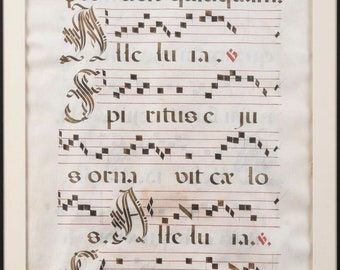 Alle lu ia. ℣
Spi ritus e ju
s orna vit cæ lo
s. Alle lu ia. ℣